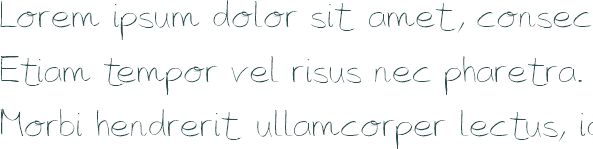 Lorem ipsum dolor sit amet, consec
Etiam tempor vel risus nec pharetra.
Morbi hendrerit ullamcorper lectus,